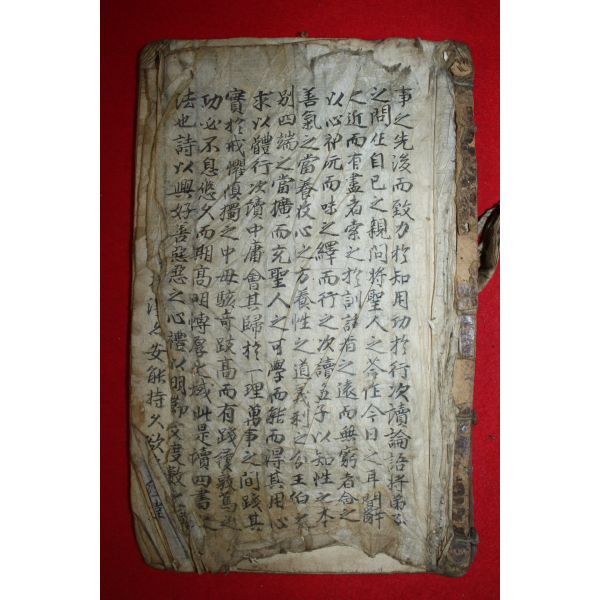 事之先後而致力於知用功於行次讀論語將弟子
之問作自己之親問將聖人之答作今日之耳聞
之近而有盡者索之於訓詁者之遠而無窮者會之
以心神玩而味之繹而行之次讀孟子以知性之本
善氣之當養收心之方養性之道義利之分王伯之
別四端之當擴而充聖人之可學而能而得其用心
求以體行次讀中庸會其歸於一理萬事之間踐其
實於戒懼慎獨之中毋騖奇跂高而有踐履敦篤之
功必不息悠久而期高明博厚之域此是讀四書之
法也詩以興好善惡惡之心禮以明節文度數
安能持久